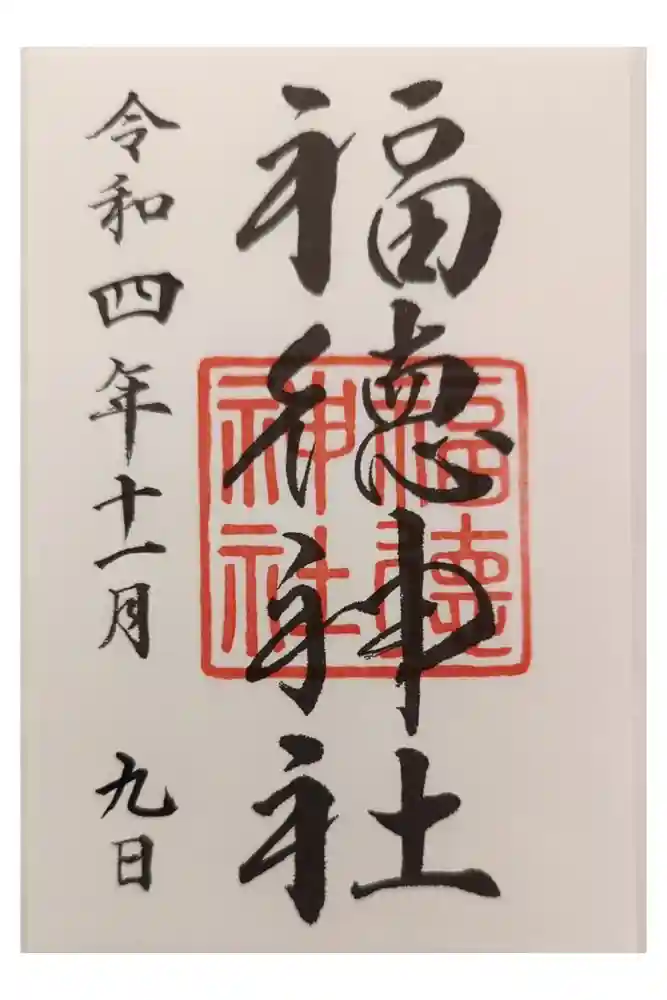 福德神社
福德
神社
令和四年十一月 九日